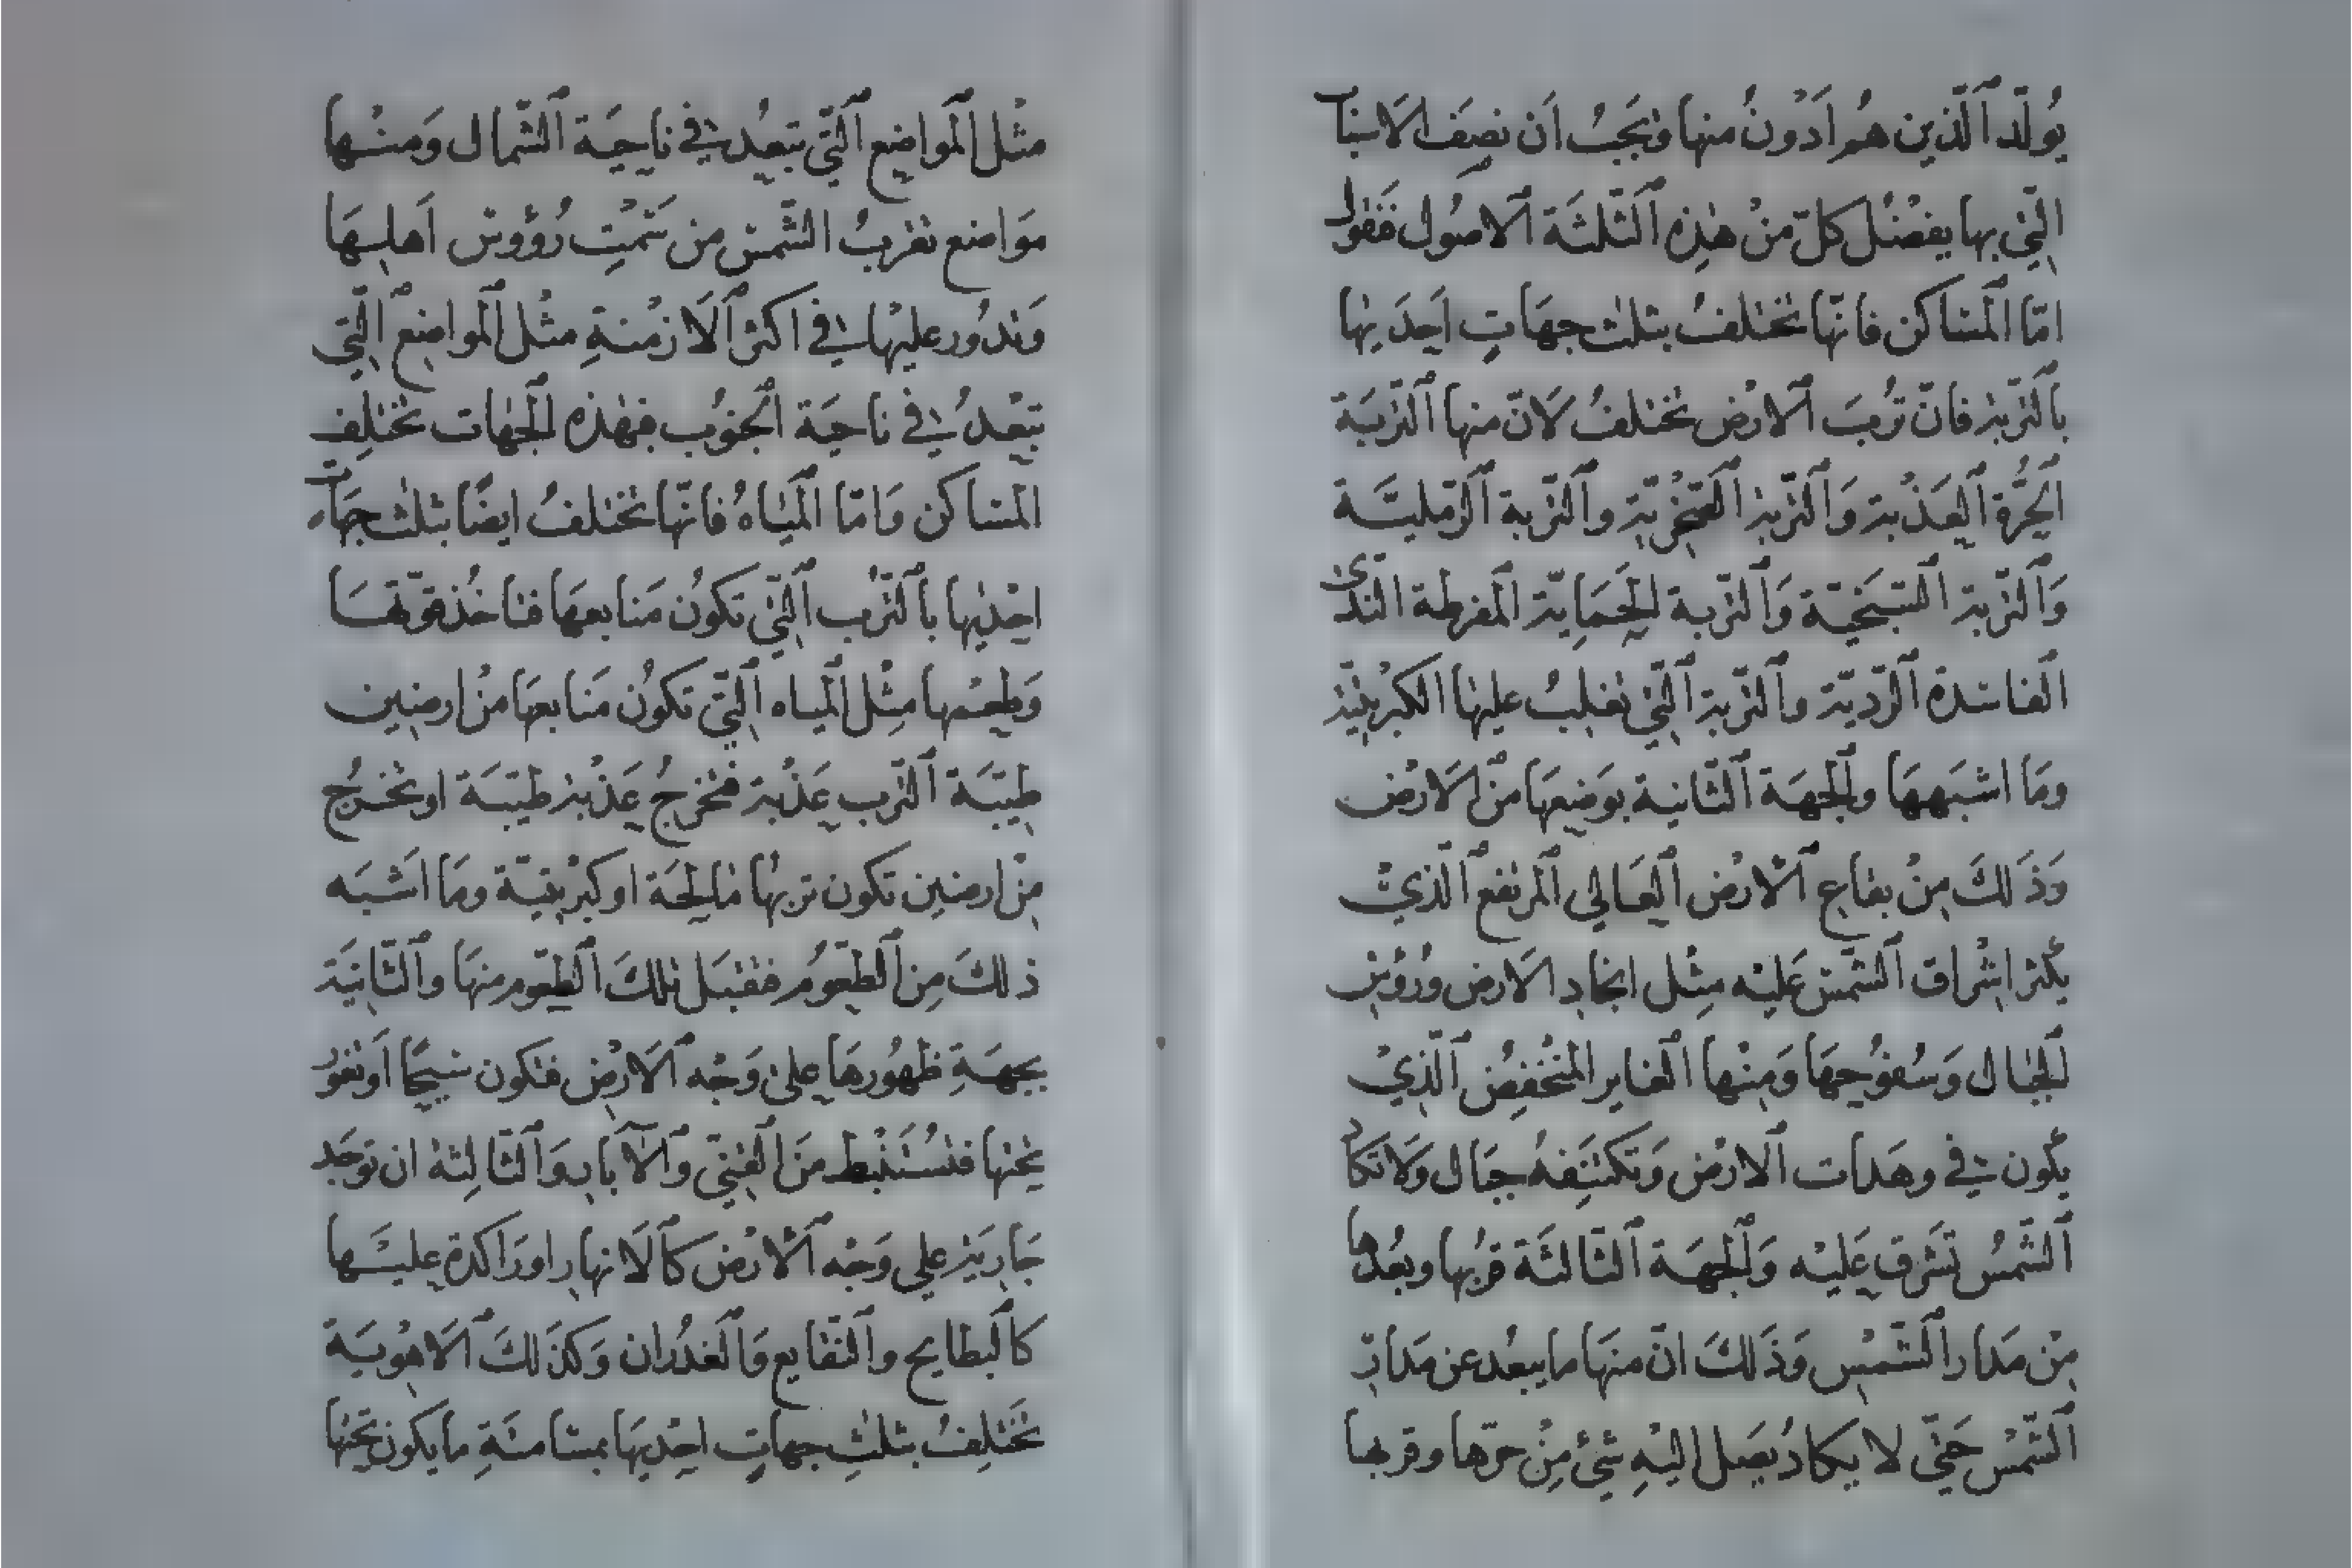 يُولّد ٱلّذين هم اَدْونُ منها ويَجبُ اَن نصِفَ الاسباب
الّتي بها يفضُل كلّ منْ هٰذِه ٱلثّلٰثَة ٱلاصُول فنقول
امّا الْمسَاكن فانّها تختلفُ بثلٰث جهَاتٍ اَحِدَيٰها
بٱلتّربة فانّ تُربَ ٱلارْض تختلفُ لَانّ منها ٱلتّربَة
ٱلحُرّة ٱلعَذْبة وَٱلتّربة ٱلصّخْريّة وٱلتّربة ٱلرّمليّة
وَٱلتّربة ٱلسّبَخيّة وَٱلتّربة ٱلحَمَايّة الْمفرطة النّدى
ٱلفاسدة ٱلرّديّة وٱلتّربة ٱلتّي تغلبُ عليها الكبْريتيّة
ومَا اشبَههَا وٱلجهَة ٱلثّانية بوَضعهَا منَ ٱلارْض
وَذَلكَ مِنْ بقاع ٱلارْض ٱلعَالي ٱلمرتفع ٱلّذيْ
يكثر اشْراق ٱلشّمْس عَليْه مثْل انجاد الارض ورؤس
ٱلجبَال وَسُفوُحهَا وَمنْها ٱلغاير المنْخفِض ٱلّذيْ
يكون في وهَدات ٱلارْض وَتكتنفهُ جبَال وَلا تكاد
ٱلشّمسُ تَشْرق عَليْه وَٱلجهَة ٱلثّالثَة قربُها وبعُدها
منْ مَدار ٱلشّمْسِ وَذَلكَ انّ منهَا ما يبعُد عن مَدار
ٱلشّمْس حَتّى لا يكادُ يصَل اليْهِ شئ مِنْ حرّها وقربها
مثْل ٱلمواضع ٱلتّي تبعُد في ناحيَة ٱلشّمال وَمنْها
مَواضع تقربُ الشّمس من سَمْتِ رُؤوس اَهلهَا
وَتدُور عليْها في اكثر ٱلاَزمْنةِ مثْل ٱلمواضع الّتي
تبْعدُ في ناحيَة ٱلجنوُب فهٰذه ٱلجهَات تختَلِف
المسَاكن وَامّا الْميَاهُ فانّها تختلفُ ايضًا بثلٰث جهَات
احْديٰها بٱلتّرُب ٱلتّي تكونُ مَنابعهَا فتاخُذ قوّتهَا
وَطعْمها مثْل ٱلمياه ٱلتّي تكوُن مَنابعهَا منْ ارضين
طيّبَة ٱلتّرب عَذْبة فتخرجُ عَذْبة طيّبَة او تخرُج
منْ ارضين تكون تربهُا مالحَة او كبرْيتيّة ومَا اشبَه
ذلكَ مِن ٱلطعُوم فتقبَل تلكَ ٱلطعُوم منهَا وٱلثّانيَة
بجهَةِ ظهُورهَا على وَجْه ٱلارْض فتكون سيحًا اَو تغور
تحْتها فتسْتَنْبط منَ ٱلقنيّ وٱلآبار وَٱلثّالثة ان توجَد
جَاريَة علي وَجْه ٱلارْض كٱلانهار او رَاكدة عليْهَا
كٱلبطايح وٱلنّقايع وَٱلغدُران وَكذَلكَ ٱلاهْويَة
تَخْتلِفُ بثلٰثِ جهاتٍ احْديهَا بمسَامتَةِ ما يكون تحْتها